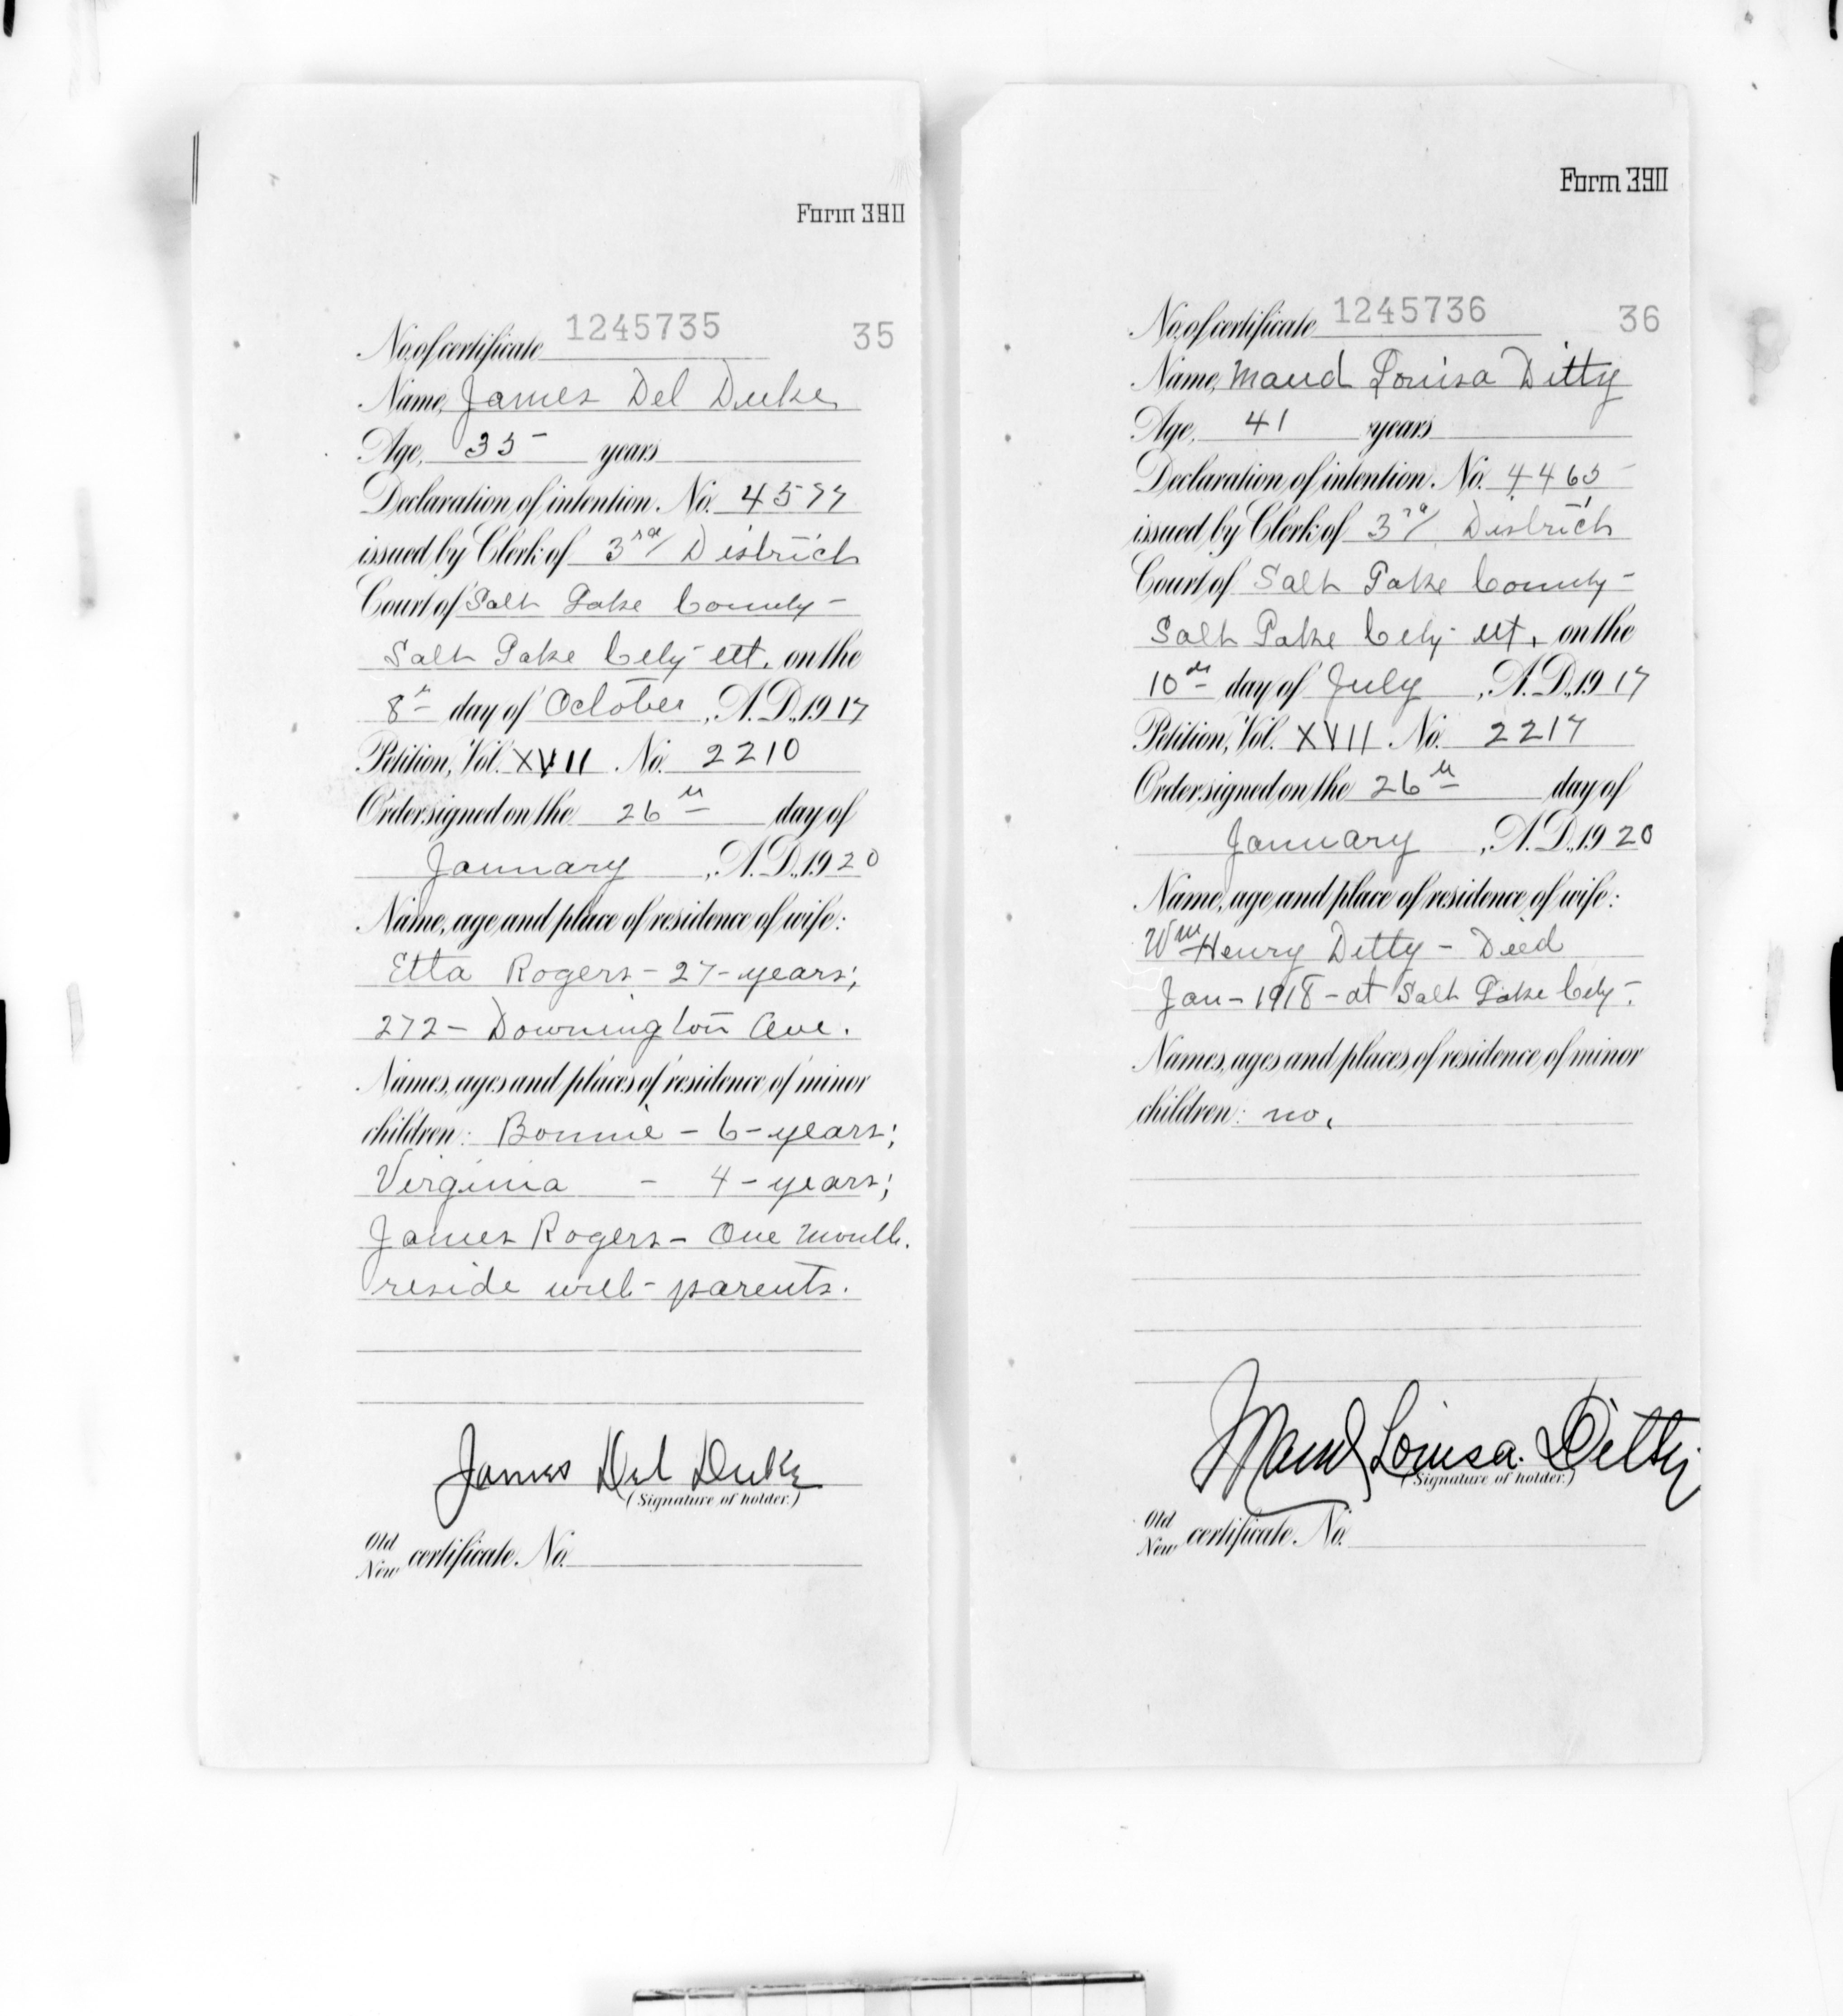 Form 390
No. of certificate 1245735 35
Name, James Del Duke
Age, 35 years
Declaration of intention. No. 4577
issued by Clerk of 3rd District
Court of Salt Lake County-
Salt Lake City Ut. on the
8th day of October, A.D., 1917
Petition, Vol. XVII No. 2210
Order signed on the 26th day of
January, A.D., 1920
Name, age and place of residence of wife:
Etta Rogers - 27 - years;
272 - Downington Ave.
Names, ages and places of residence of minor
children: Bonnie - 6 - years;
Virginia - 4 - years;
James Rogers - One month.
reside with - parents.
James Del Duke
(Signature of holder.)
Old
New certificate. No.
Form 390
No. of certificate 1245736 36
Name, Maud Louisa Ditty
Age, 41 years
Declaration of intention. No. 4465
issued by Clerk of 3rd District
Court of Salt Lake County-
Salt Lake City Ut. on the
10th day of July, A.D., 1917
Petition, Vol. XVII No. 2217
Order signed on the 26th day of
January, A.D., 1920
Name, age and place of residence of wife:
Wm Henry Ditty - Died
Jan - 1918 - at Salt Lake City.
Names, ages and places of residence of minor
children: no.
Maud Louisa Ditty
(Signature of holder.)
Old
New certificate. No.